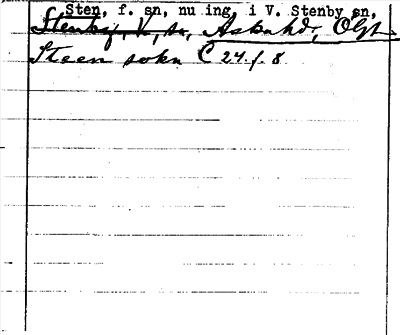 Sten, f. sn, nu ing. i V. Stenby sn,
Stenby, V., sn, Aska hd, Ögl
Steen sokn C 24 f. 8